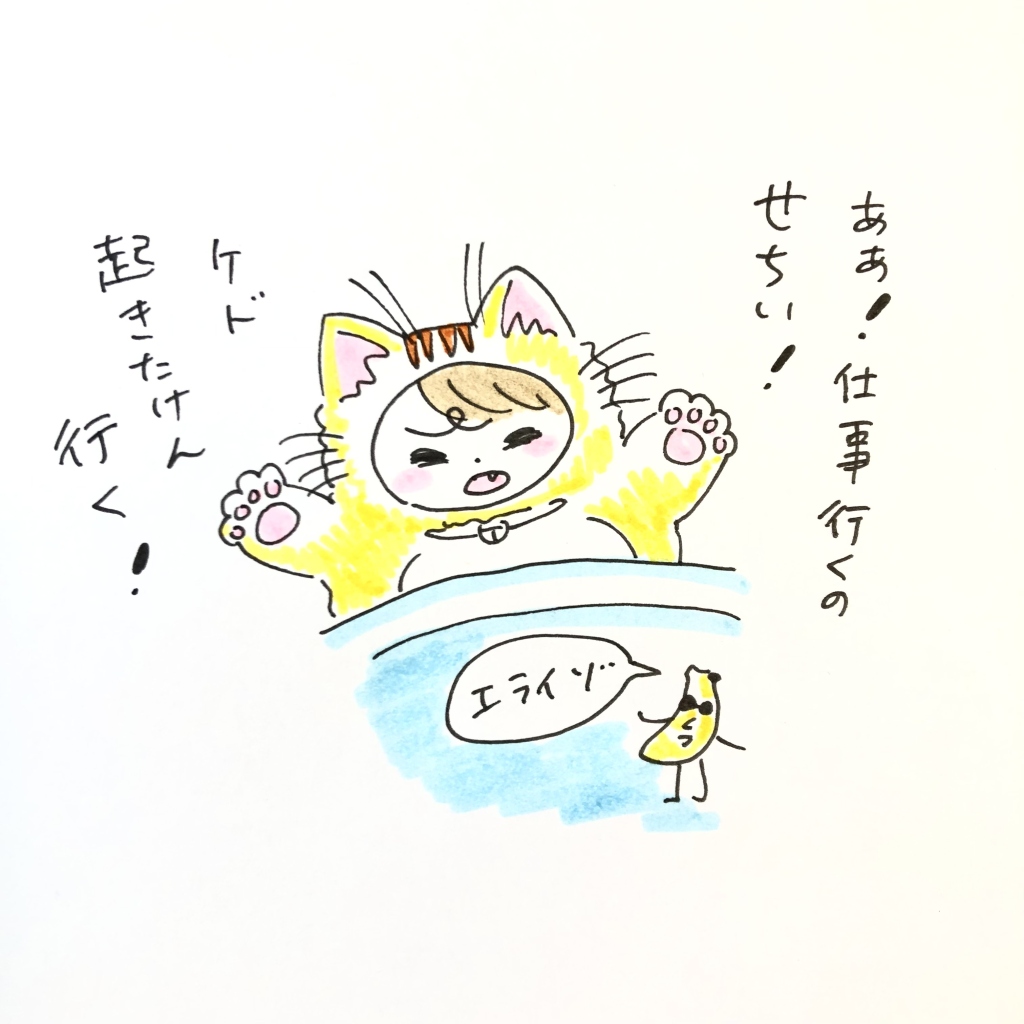 ああ！仕事行くの
せちい！
ケド
起きたけん
行く！
エライゾ